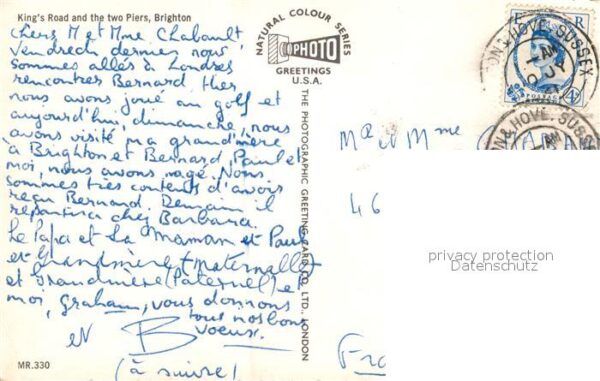 King's Road and the two Piers, Brighton
Chers M et Mme Chabault
Vendredi dernier nous
sommes allés à Londres
rencontres Bernard Hier
nous avons joué au golf et
aujourd'hui, dimanche, nous
avons visité ma grand'mère
à Brighton et Bernard, Paul et
moi, nous avons nagé. Nous
sommes très contents d'avoir
reçu Bernard. Demain il
repartira chez Barbara.
Le Papa et La Maman et Paul
et Grandmère (maternelle)
et Grandmère (Paternel) et
moi, Graham, vous donnons
tous nos bons
voeux.
et B
(à suivre)
MR.330
NATURAL COLOUR SERIES
PHOTO
GREETINGS
U.S.A.
THE PHOTOGRAPHIC GREETING CARD CO., LTD., LONDON
E R
POSTAGE
ON & HOVE. SUSSEX
AM
JY
ON & HOVE. SUSSEX
AM
M et Mme
46
privacy protection
Datenschutz
Fra